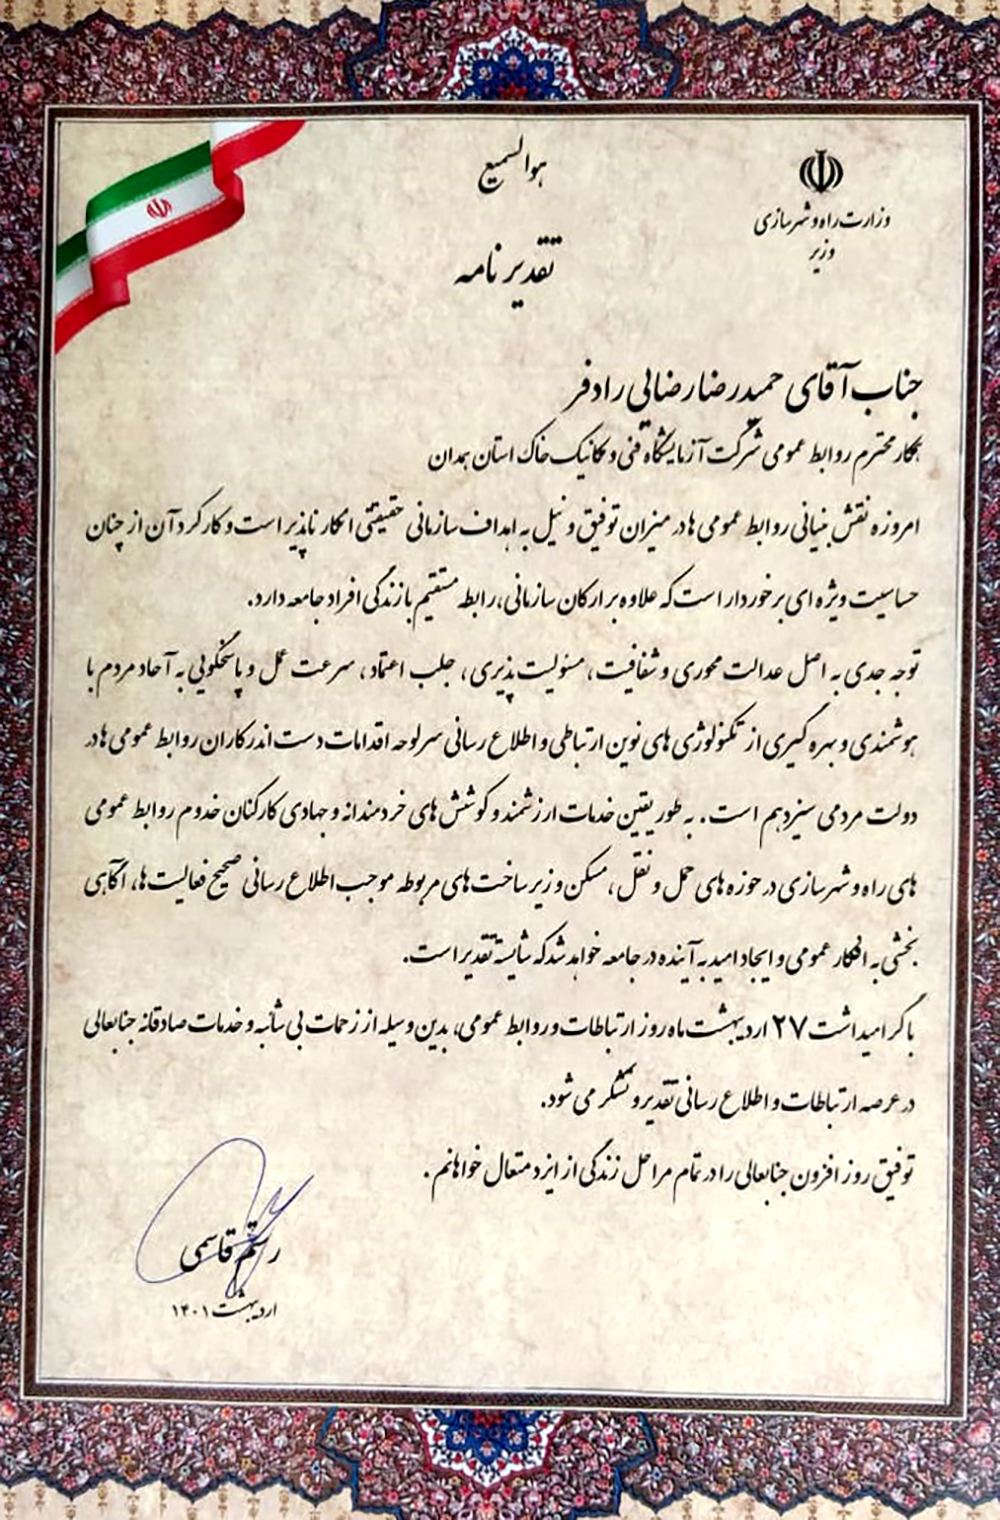 هوالسمیع
وزارت راه و شهرسازی
وزیر
تقدیر نامه
جناب آقای حمیدرضا رضائی رادفر
همکار محترم روابط عمومی شرکت آزمایشگاه فنی و مکانیک خاک استان همدان
امروزه نقش بنیانی روابط عمومی ها در میزان توفیق و نیل به اهداف سازمانی حقیقتی انکار ناپذیر است و کارکرد آن از چنان
حساسیت ویژه ای برخوردار است که علاوه بر ارکان سازمانی، رابطه مستقیم با زندگی افراد جامعه دارد.
توجه جدی به اصل عدالت محوری و شفافیت، مسئولیت پذیری، جلب اعتماد، سرعت عمل و پاسخگویی به آحاد مردم با
هوشمندی و بهره گیری از تکنولوژی های نوین ارتباطی و اطلاع رسانی سرلوحه اقدامات دست اندرکاران روابط عمومی ها در
دولت مردمی سیزدهم است. به طور یقین خدمات ارزشمند و کوشش های خردمندانه و جهادی کارکنان خدوم روابط عمومی
های راه و شهرسازی در حوزه های حمل و نقل، مسکن و زیرساخت های مربوطه موجب اطلاع رسانی صحیح فعالیت ها، آگاهی
بخشی به افکار عمومی و ایجاد امید به آینده در جامعه خواهد شد که شایسته تقدیر است.
با گرامیداشت ۲۷ اردیبهشت ماه روز ارتباطات و روابط عمومی، بدین وسیله از زحمات بی شائبه و خدمات صادقانه جنابعالی
در عرصه ارتباطات و اطلاع رسانی تقدیر و تشکر می شود.
توفیق روز افزون جنابعالی را در تمام مراحل زندگی از ایزد متعال خواهانم.
رستم قاسمی
اردیبهشت ۱۴۰۱